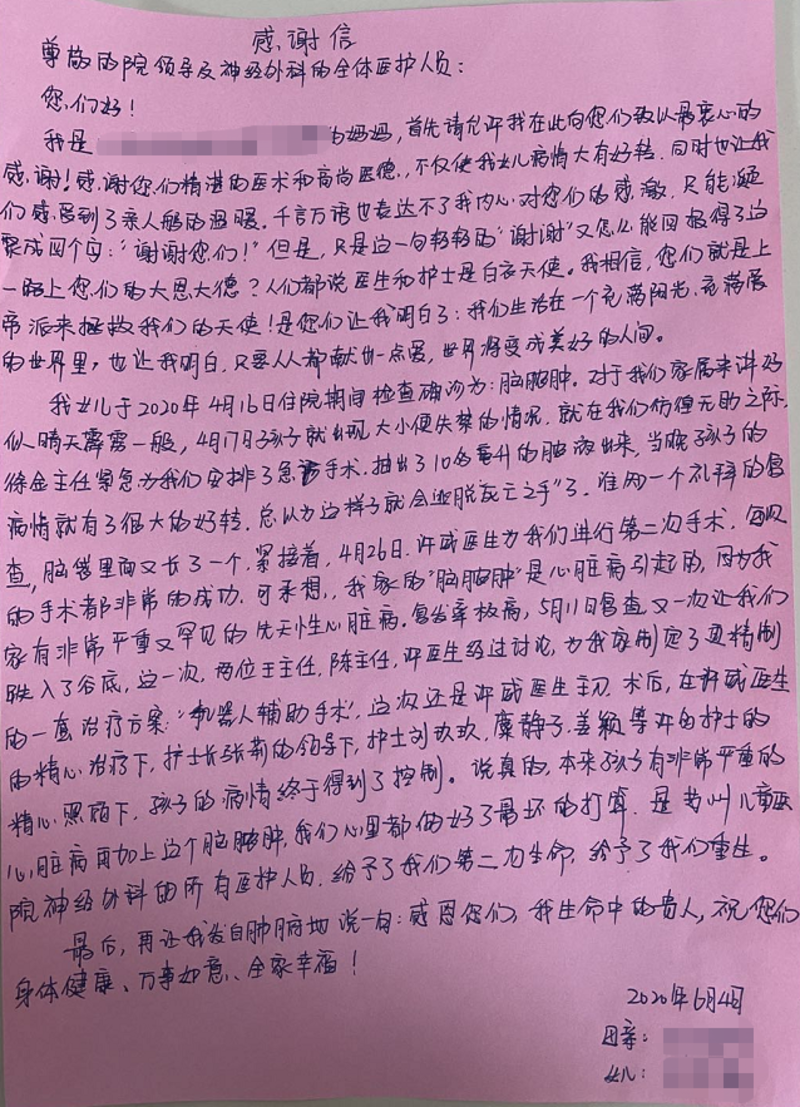 感谢信
尊敬的院领导及神经外科的全体医护人员：
您们好！
我是 的妈妈，首先请允许我在此向您们致以最衷心的
感谢！感谢您们精湛的医术和高尚医德，不仅使我女儿病情大有好转，同时也让我
们感受到了亲人般的温暖。千言万语也表达不了我内心对您们的感激，只能凝
聚成四个字：“谢谢您们！”但是，只是这一句轻轻的“谢谢”又怎么能回报得了这
一路上您们的大恩大德？人们都说医生和护士是白衣天使。我相信，您们就是上
帝派来拯救我们的天使！是您们让我明白了：我们生活在一个充满阳光、充满爱
的世界里，也让我明白，只要人人都献出一点爱，世界将变成美好的人间。
我女儿于2020年4月16日住院期间检查确诊为：脑脓肿。对于我们家属来讲好
似晴天霹雳一般，4月17日孩子就出现大小便失禁的情况，就在我们彷徨无助之际，
徐金主任紧急为我们安排了急诊手术，抽出了10多毫升的脑液出来，当晚孩子的
病情就有了很大的好转，总以为这样子就会逃脱“死亡之手”了，谁知一个礼拜的复
查，脑袋里面又长了一个，紧接着，4月26日，许威医生为我们进行第二次手术，每次
的手术都非常的成功，可未想，我家的“脑脓肿”是心脏病引起的，因为我
家有非常严重又罕见的先天性心脏病，复发率极高，5月11日复查又一次让我们
跌入了谷底，这一次，两位王主任，陈主任，许医生经过讨论，为我家制定了更精制
的一套治疗方案：“机器人辅助手术”，这次还是许威医生主刀，术后，在许威医生
的精心治疗下，护士长张莉的领导下，护士刘玖玖，糜静子，姜颖等等的护士的
精心照顾下，孩子的病情终于得到了控制。说真的，本来孩子有非常严重的
心脏病再加上这个脑脓肿，我们心里都做好了最坏的打算，是苏州儿童医
院神经外科的所有医护人员，给予了我们第二次生命，给予了我们重生。
最后，再让我发自肺腑地说一句：感恩您们，我生命中的贵人，祝您们
身体健康、万事如意、全家幸福！
2020年6月4日
母亲：
女儿：